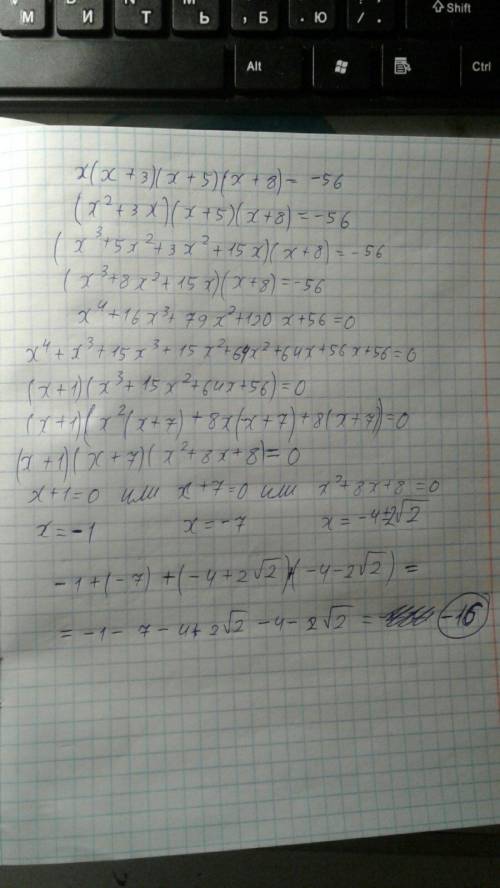 М И Т Ь , Б . Ю / . ⇧Shift
Alt Ctrl
x(x+3)(x+5)(x+8)= -56
(x²+3x)(x+5)(x+8)=-56
(x³+5x²+3x²+15x)(x+8)=-56
(x³+8x²+15x)(x+8)=-56
x⁴+16x³+79x²+120x+56=0
x⁴+x³+15x³+15x²+64x²+64x+56x+56=0
(x+1)(x³+15x²+64x+56)=0
(x+1)(x²(x+7)+8x(x+7)+8(x+7))=0
(x+1)(x+7)(x²+8x+8)=0
x+1=0 или x+7=0 или x²+8x+8=0
x=-1 x=-7 x=-4±2√2
-1+(-7)+(-4+2√2)+(-4-2√2)=
=-1-7-4+2√2-4-2√2= -16